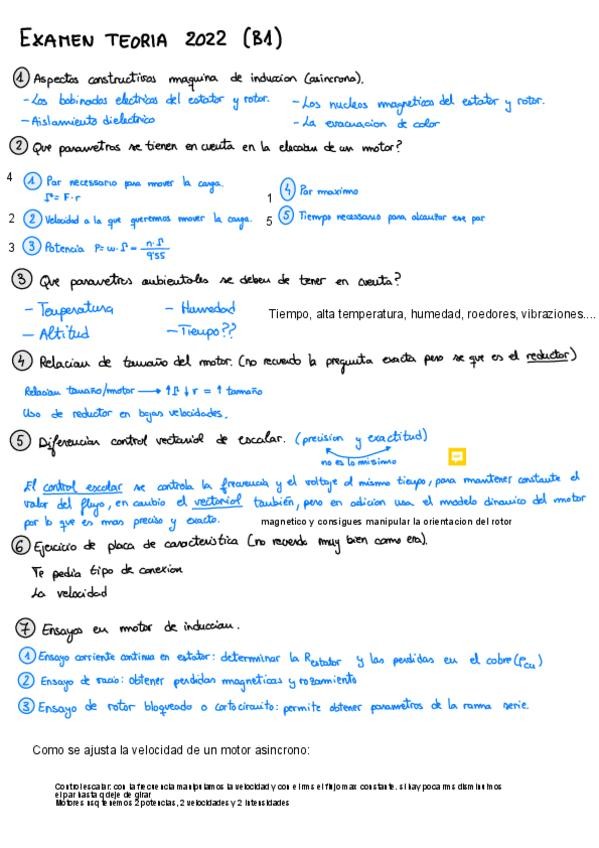 EXAMEN TEORIA 2022 (B1)
1 Aspectos constructivos maquina de induccion (asincrona).
- Los bobinados electricos del estator y rotor. - Los nucleos magneticos del estator y rotor.
- Aislamiento dielectrico - La evacuacion de calor
2 Que parametros se tienen en cuenta en la eleccion de un motor?
4 1 Par necesario para mover la carga. 1 4 Par maximo
Γ = F·r
2 2 Velocidad a la que queremos mover la carga. 5 5 Tiempo necesario para alcanzar ese par
3 3 Potencia P = ω·Γ = n·Γ / 9'55
3 Que parametros ambientales se deben de tener en cuenta?
- Temperatura - Humedad Tiempo, alta temperatura, humedad, roedores, vibraciones....
- Altitud - Tiempo??
4 Relacion de tamaño del motor. (no recuerdo la pregunta exacta pero se que es el reductor)
Relacion tamaño/motor → ↑Γ ↓r = ↑ tamaño
Uso de reductor en bajas velocidades.
5 Diferencian control vectorial de escalar. (precision y exactitud)
no es lo mismo
El control escalar se controla la frecuencia y el voltaje al mismo tiempo, para mantener constante el
valor del flujo, en cambio el vectorial también, pero en adicion usa el modelo dinamico del motor
por lo que es mas preciso y exacto. magnetico y consigues manipular la orientacion del rotor
6 Ejercicio de placa de caracteristica (no recuerdo muy bien como era).
Te pedia tipo de conexion
La velocidad
7 Ensayos en motor de induccion.
1 Ensayo corriente continua en estator: determinar la Restator y las perdidas en el cobre (Pcu)
2 Ensayo de vacio: obtener perdidas magneticas y rozamiento
3 Ensayo de rotor bloqueado o cortocircuito: permite obtener parametros de la rama serie.
Como se ajusta la velocidad de un motor asincrono:
Control escalar: con la frecuencia manipulamos la velocidad y con el rms el flujo max constante. si hay poca rms disminuimos
el par hasta q deje de girar
Motores nsq tenemos 2 potencias, 2 velocidades y 2 intensidades